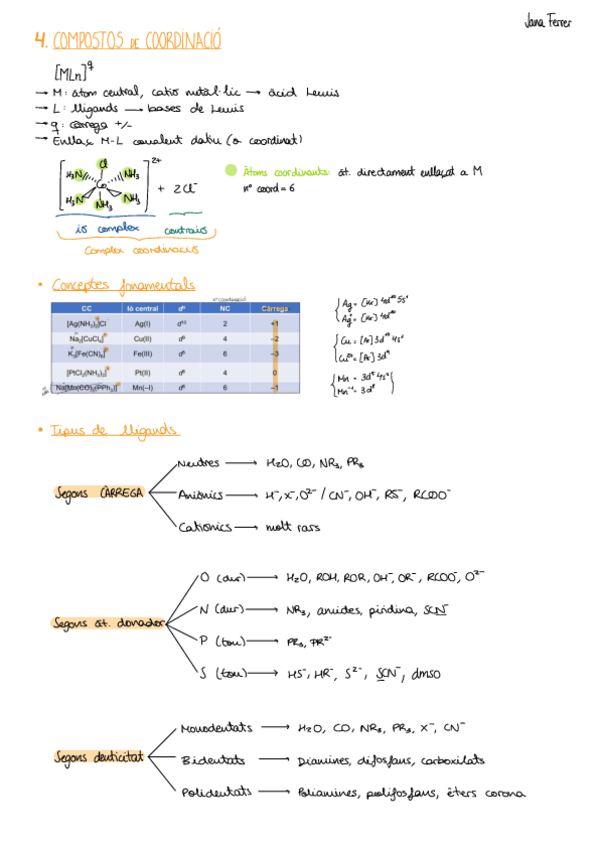 Jana Ferrer
4. COMPOSTOS DE COORDINACIÓ
[MLn]q
→ M: àtom central, catió metàl·lic → àcid Lewis
→ L: lligands → bases de Lewis
→ q: càrrega +/-
→ Enllaç M-L covalent datiu (o coordinat)
[Co Cl NH3 NH3 NH3 H3N H3N]2+ + 2Cl-
Àtoms coordinants: àt. directament enllaçat a M
nº coord = 6
ió complex contraió
Complex coordinació
• Conceptes fonamentals
nº coordinació
CC Ió central dn NC Càrrega
[Ag(NH3)2]Cl Ag(I) d10 2 +1
Na2[CuCl4] Cu(II) d9 4 -2
K3[Fe(CN)6] Fe(III) d5 6 -3
[PtCl2(NH3)2] Pt(II) d8 4 0
Na[Mn(CO)5(PPh3)] Mn(-I) d8 6 -1
Ag = [Kr] 4d10 5s1
Ag+ = [Kr] 4d10
Cu = [Ar] 3d10 4s1
Cu2+ = [Ar] 3d9
Mn = 3d5 4s2
Mn-1 = 3d8
• Tipus de lligands
Segons CÀRREGA
Neutres → H2O, CO, NR3, PR3
Aniònics → H-, X-, O2- / CN-, OH-, RS-, RCOO-
Catiònics → molt rars
Segons àt. donador
O (dur) → H2O, ROH, ROR, OH-, OR-, RCOO-, O2-
N (dur) → NR3, amides, piridina, SCN-
P (tou) → PR3, PR2-
S (tou) → HS-, HR-, S2-, SCN-, dmso
Segons denticitat
Monodentats → H2O, CO, NR3, PR3, X-, CN-
Bidentats → Diamines, difosfans, carboxilats
Polidentats → Poliamines, polifosfans, èters corona